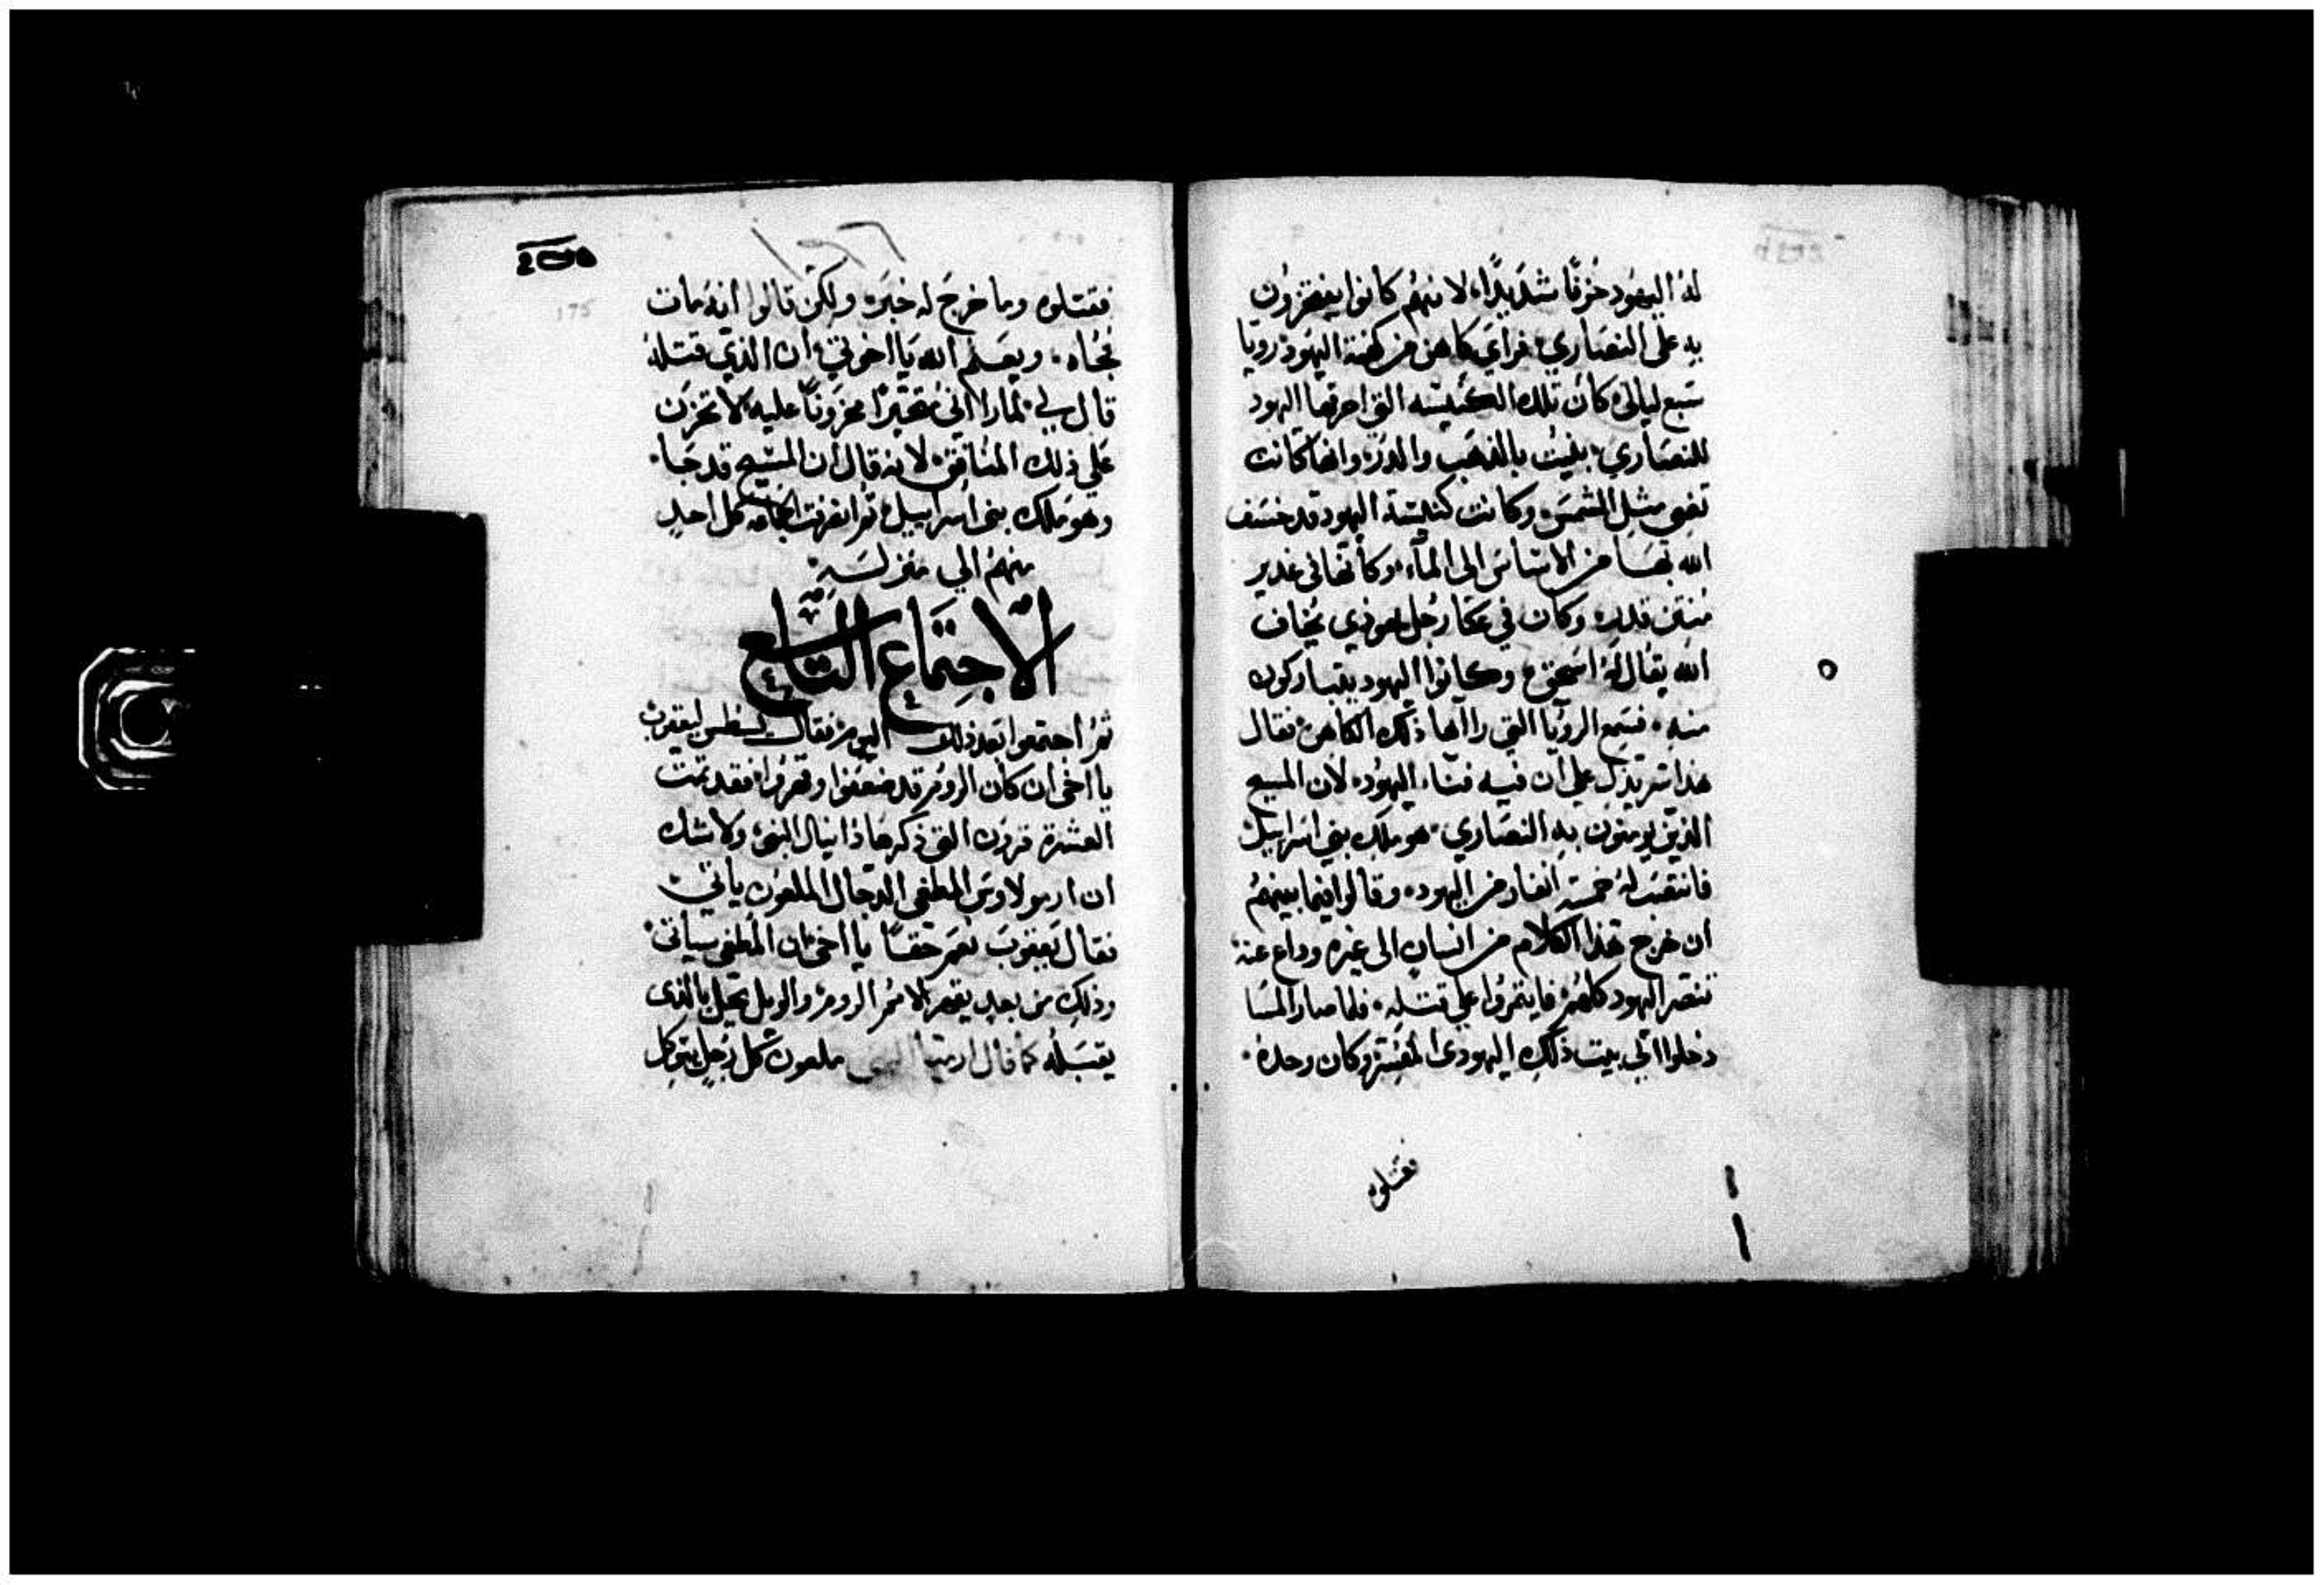 له اليهود حزنًا شديدًا، لانهم كانوا يفتخرون
به على النصاري، فراي كاهن من كهنة اليهود رويا
سبع ليالي كان تلك الكنيسه التي احرقها اليهود
للنصاري، بنيت بالذهب والدر، وانها كانت
تضي مثل الشمس، وكانت كنيسة اليهود قد خسف
الله بها من الاساس الى الماء، وكانها في غدير
منتن قدر، وكان في عكا رجل يهودي يخاف
الله يقال له اسحق، وكانوا اليهود يتباركون
منه، فسمع الرؤيا التي راآها ذلك الكاهن، فقال
هذا سر يدل علي ان فيه فناء اليهود، لان المسيح
الذين يومنون به النصاري، هو ملك بني اسراييل
فانتصب له خمسة انفار من اليهود، وقالوا فيما بينهم
ان خرج هذا الكلام من انسان الى غيره وداع عنه
تنصر اليهود كلهم، فايتمروا على قتله، فلما صار المسا
دخلوا الي بيت ذلك اليهودى وكان وحده،
فقتلوه
175
فقتلوه وما خرج له خبره ولكن قالوا انه مات
فجاه، ويعلم الله يا اخوتي، ان الذي قتله
قال لي، لما راانى متحيرًا محزونًا عليه، لا تحزن
على ذلك المنافق، لانه قال ان المسيح قد جا،
وهو ملك بنى اسراييل، ثم انصرفت الجماعه كل احد
منهم الي منزله،
الاجتماع التاسع
ثم اجتمعوا بعد ذلك اليوم فقال يسطس ليعقوب
يا اخى ان كان الروم قد ضعفوا وقهروا فقد تمت
العشرة قرون التى ذكرها دانيال النبى، ولا شك
ان ارمولاوس المطغى الدجال الملعون ياتي
فقال يعقوب نعم حقًا يا اخى ان المطغى سياتى
وذلك من بعد يقهر الامم الروم، والويل يحل بالذى
يقبله كما قال ارميا النبى ملعون كل رجل يتوكل